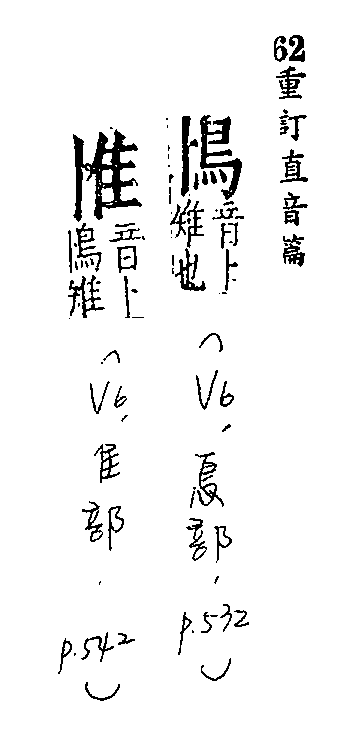 62重訂直音篇
鳪
音卜
雉也
(V6, 鳥部, p.532)
音卜
鳪雉
(V6, 隹部, p.542)